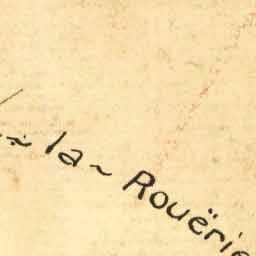 la~ Rouërie